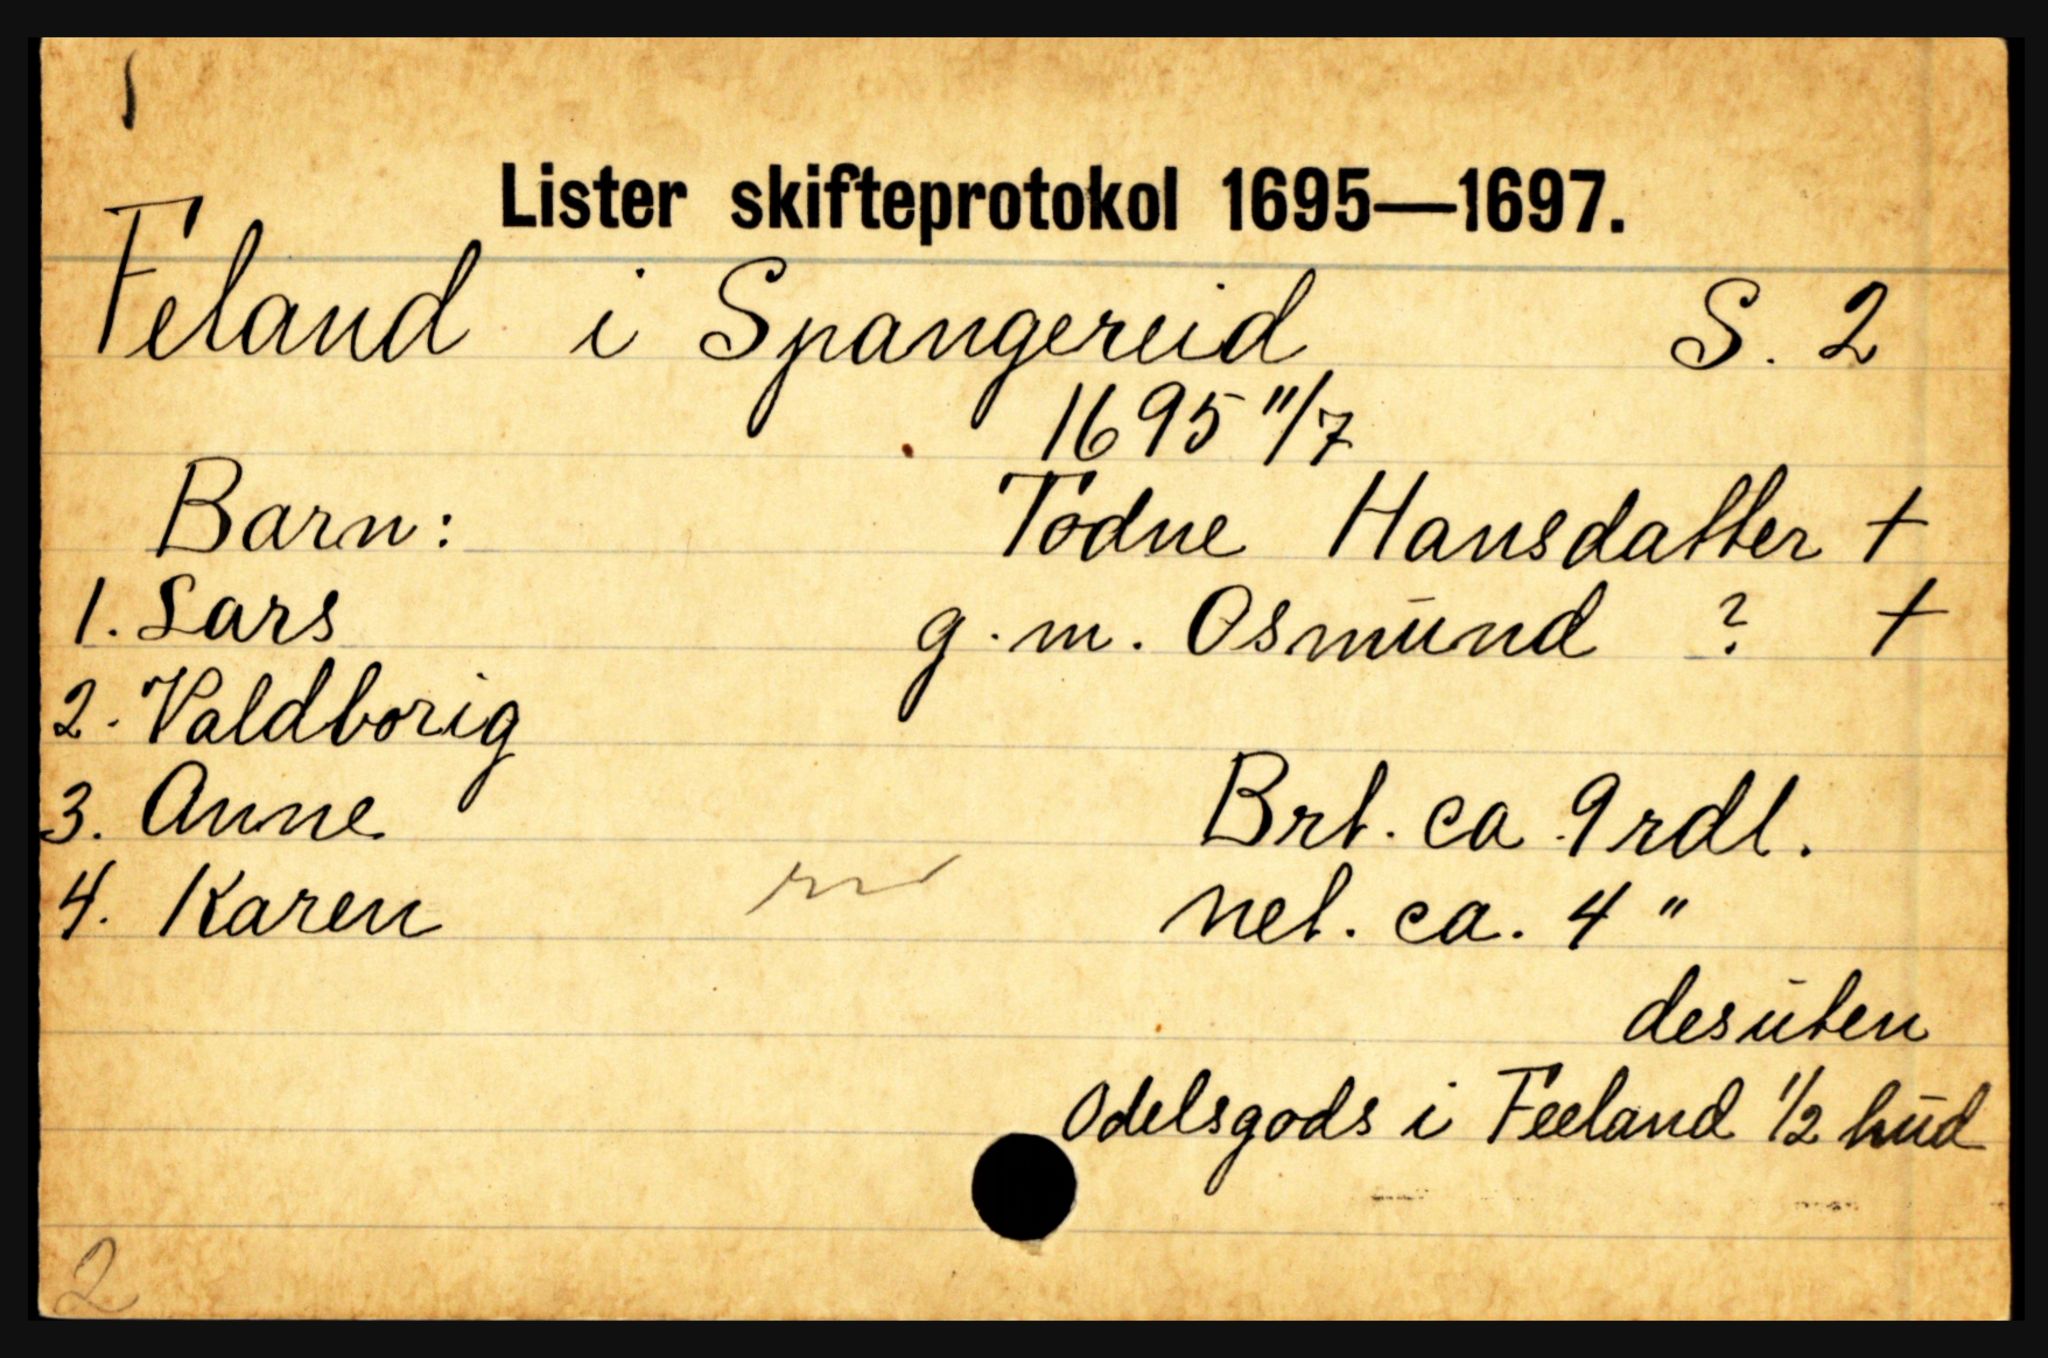 1
Lister skifteprotokol 1695—1697.
Feland i Spangereid S. 2
1695 11/7
Barn: Todne Hansdatter †
1. Lars g. m. Osmund ? †
2. Valdborig
3. Anne Brt. ca 9 rdl.
4. Karen net. ca. 4 "
desuten
Odelsgods i Feeland 1/2 hud
2